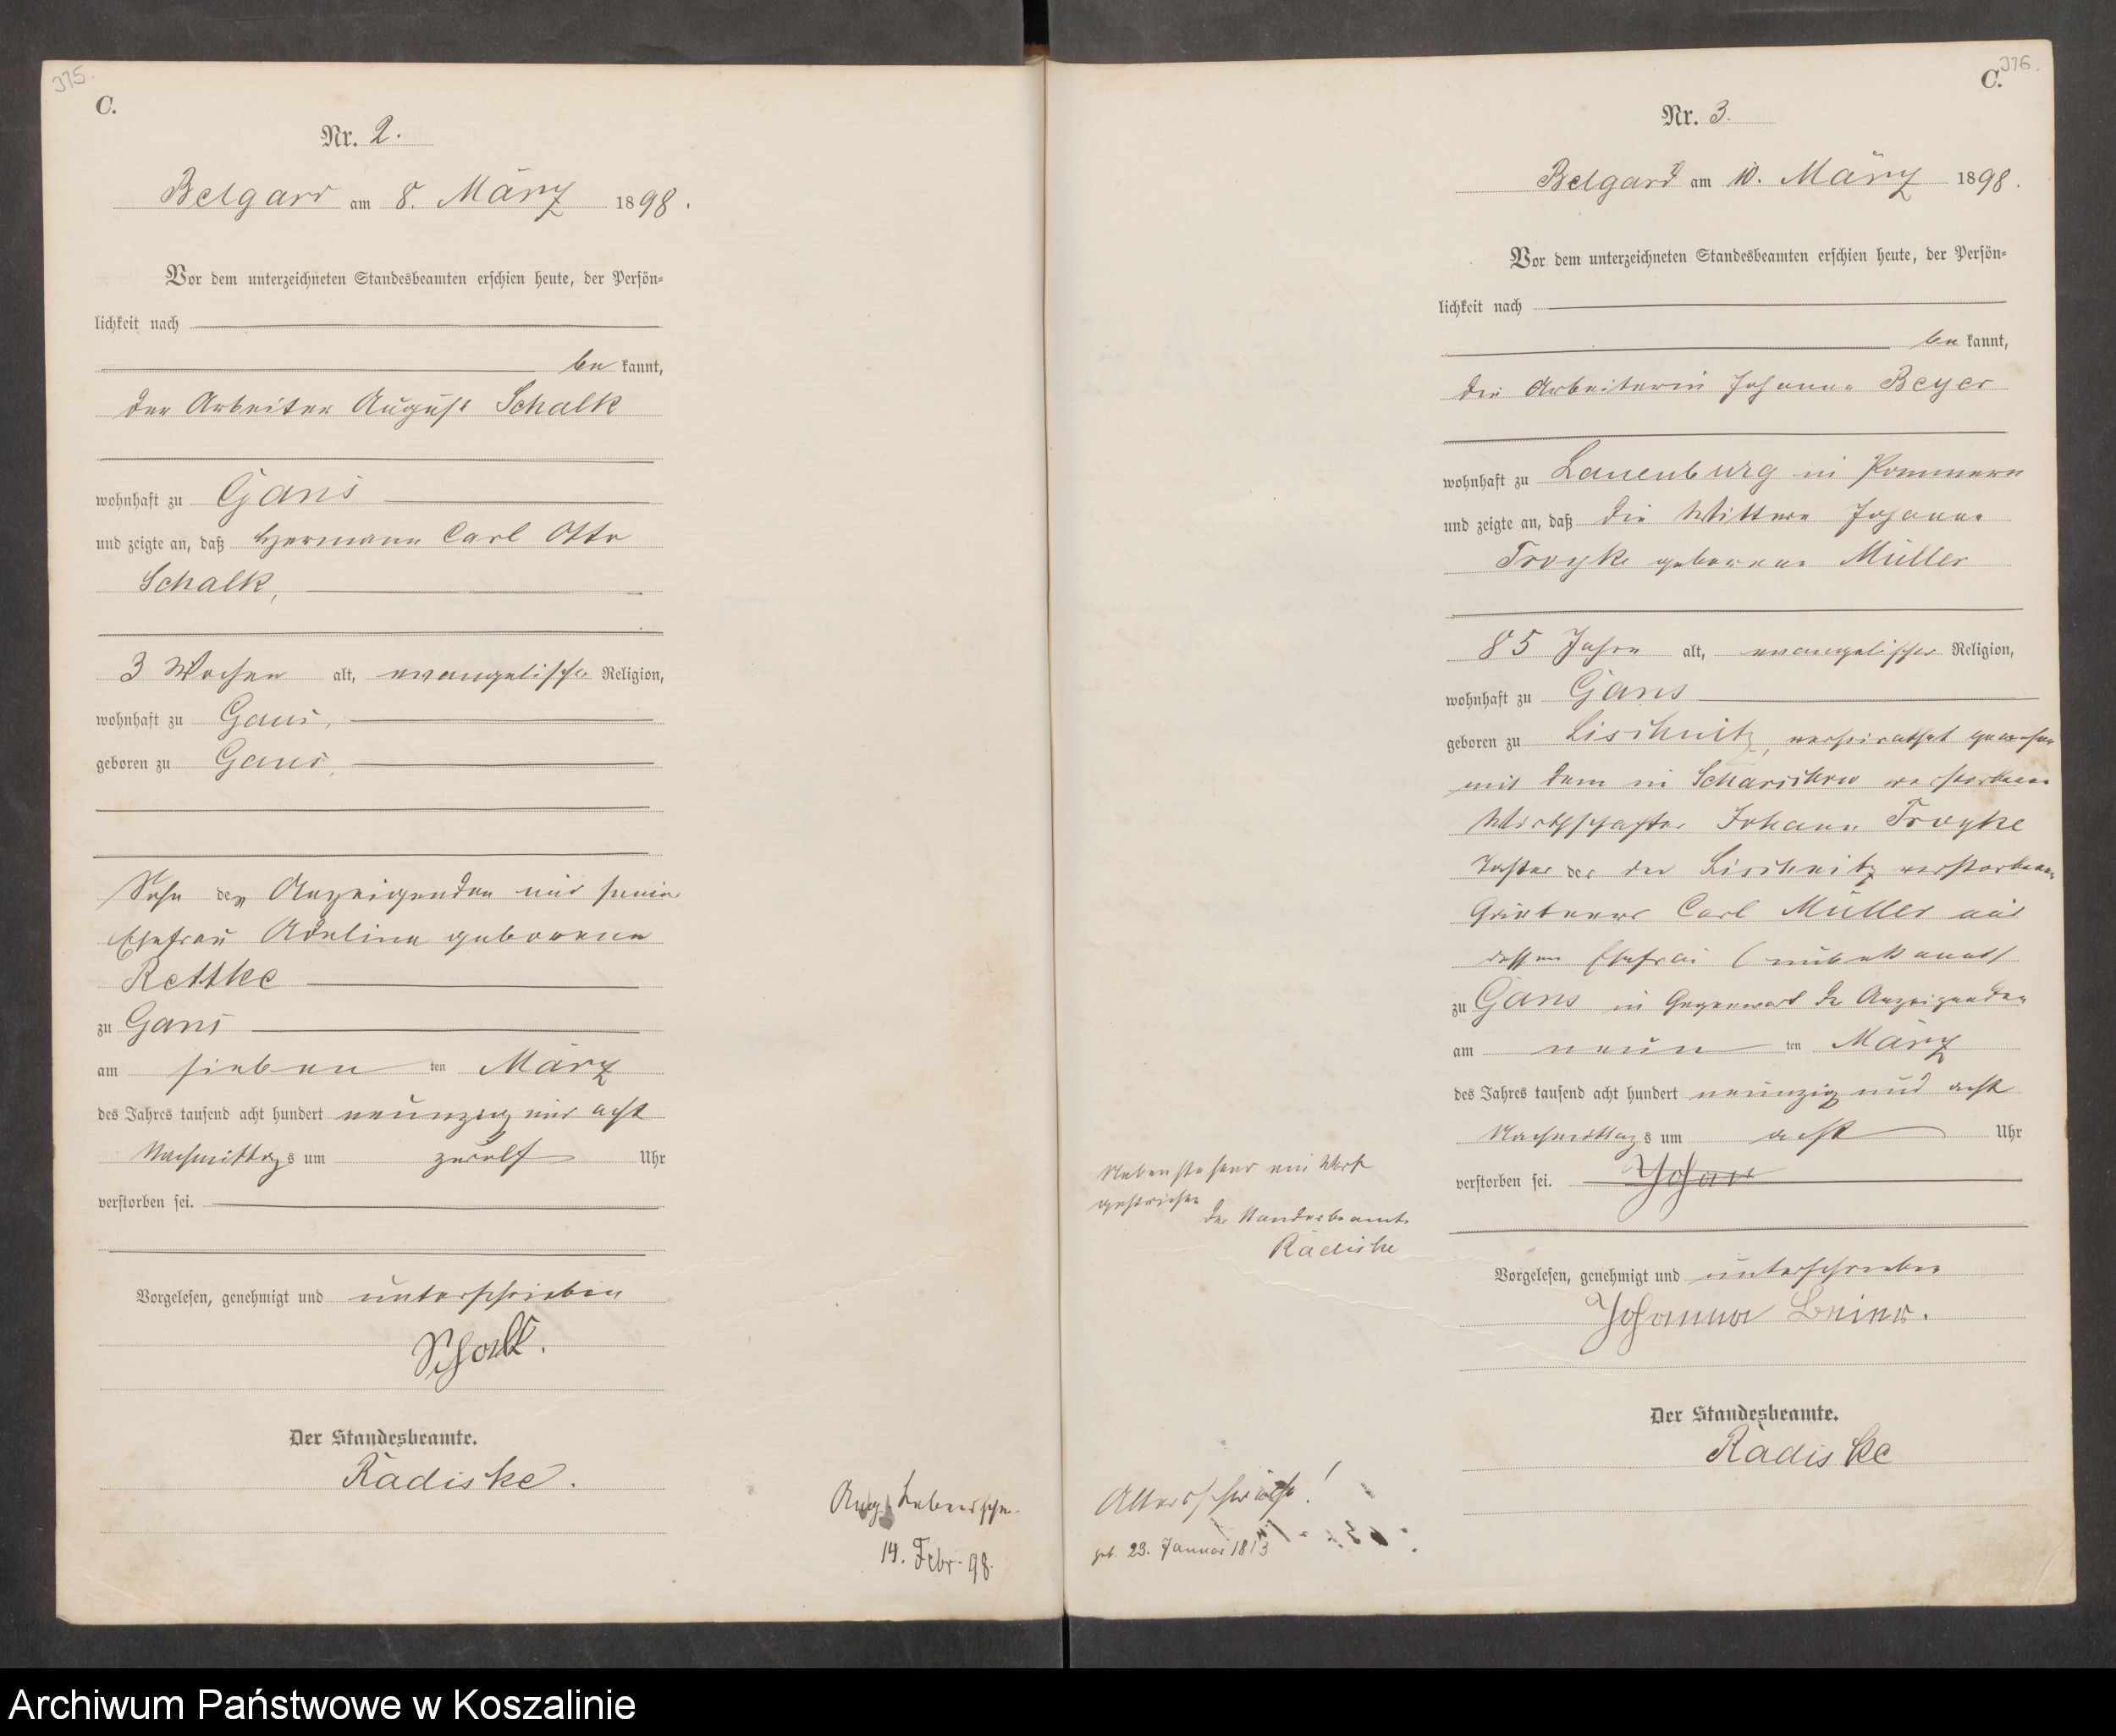 375.
C.
Nr. 2.
Belgard am 8. März 1898.
Vor dem unterzeichneten Standesbeamten erschien heute, der Persön-
lichkeit nach
be kannt,
der Arbeiter August Schalk
wohnhaft zu Gans
und zeigte an, daß Hermann Carl Otto
Schalk,
3 Wochen alt, evangelischer Religion,
wohnhaft zu Gans,
geboren zu Gans,
Sohn des Anzeigenden und seiner
Ehefrau Adeline geborene
Rettke
zu Gans
am sieben ten März
des Jahres tausend acht hundert neunzig und acht
Nachmittags um zwölf Uhr
verstorben sei.
Vorgelesen, genehmigt und unterschrieben
Schalk.
Der Standesbeamte.
Radiske.
14. Febr. 98.
376.
C.
Nr. 3.
Belgard am 10. März 1898.
Vor dem unterzeichneten Standesbeamten erschien heute, der Persön-
lichkeit nach
be kannt,
die Arbeiterin Johanna Beyer
wohnhaft zu Lauenburg in Pommern
und zeigte an, daß die Wittwe Johanne
Troyke geborene Müller
85 Jahre alt, evangelischer Religion,
wohnhaft zu Gans
geboren zu Lischnitz, verheirathet gewesen
mit dem in Scharschow verstorbenen
Wirthschafter Johann Troyke
Tochter der der Lischnitz verstorbenen
Carl Müller und
dessen Ehefrau (unbekannt)
zu Gans in Gegenwart der Anzeigenden
am neun ten März
des Jahres tausend acht hundert neunzig und acht
Nachmittags um acht Uhr
verstorben sei.
Nebenstehend ein Wort
gestrichen
Der Standesbeamte
Radiske
Vorgelesen, genehmigt und unterschrieben
Johanna Beier.
Der Standesbeamte.
Radiske
Altersschwäche!
geb. 23. Januar 1813
Archiwum Państwowe w Koszalinie